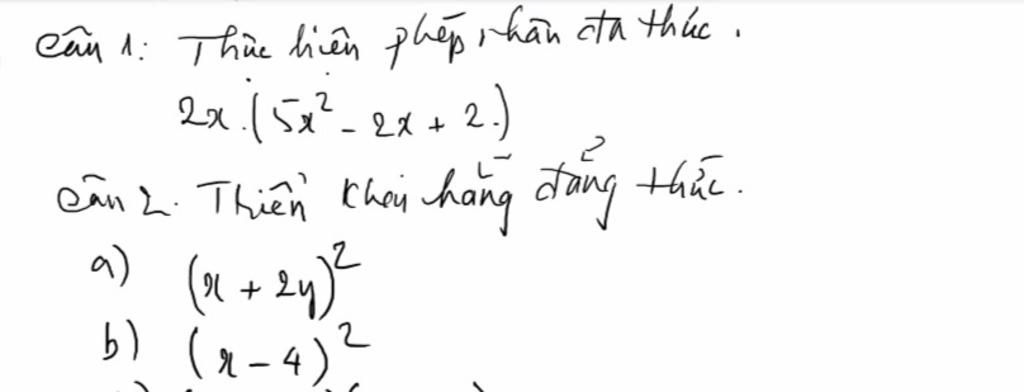 Câu 1: Thực hiện phép nhân đa thức.
2x.(5x² - 2x + 2.)
Câu 2. Triển khai hằng đẳng thức.
a) (x + 2y)²
b) (x - 4)²